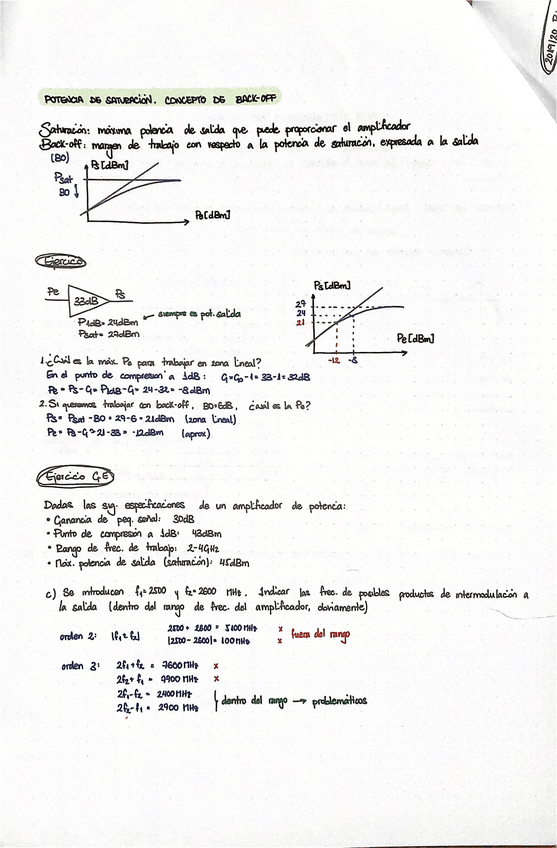 2019/20
POTENCIA DE SATURACIÓN. CONCEPTO DE BACK-OFF
Saturación: máxima potencia de salida que puede proporcionar el amplificador
Back-off: margen de trabajo con respecto a la potencia de saturación, expresada a la salida
(BO)
Ps [dBm]
Psat
BO ↓
Pe [dBm]
Ejercicio
Pe 33dB Ps
P1dB = 24dBm
Psat = 27dBm
← siempre es pot. salida
Ps [dBm]
27
24
21
Pe [dBm]
-12 -8
1. ¿Cuál es la máx. Pe para trabajar en zona lineal?
En el punto de compresión a 1dB: G = G0 - 1 = 33 - 1 = 32dB
Pe = Ps - G = P1dB - G = 24 - 32 = -8dBm
2. Si queremos trabajar con back-off, BO=6dB, ¿cuál es la Pe?
Ps = Psat - BO = 27 - 6 = 21dBm (zona lineal)
Pe = Ps - G ≈ 21 - 33 = -12dBm (aprox)
Ejercicio G.5
Dadas las sig. especificaciones de un amplificador de potencia:
• Ganancia de peq. señal: 30dB
• Punto de compresión a 1dB: 43dBm
• Rango de frec. de trabajo: 2-4GHz
• Máx. potencia de salida (saturación): 45dBm
c) Se introducen f1 = 2500 y f2 = 2600 MHz. Indicar las frec. de posibles productos de intermodulación a
la salida (dentro del rango de frec. del amplificador, obviamente)
orden 2: |f1 ± f2|
2500 + 2600 = 5100 MHz x
|2500 - 2600| = 100 MHz x
fuera del rango
orden 3: 2f1 + f2 = 7600 MHz x
2f2 + f1 = 7700 MHz x
2f1 - f2 = 2400 MHz
2f2 - f1 = 2700 MHz
dentro del rango → problemáticos